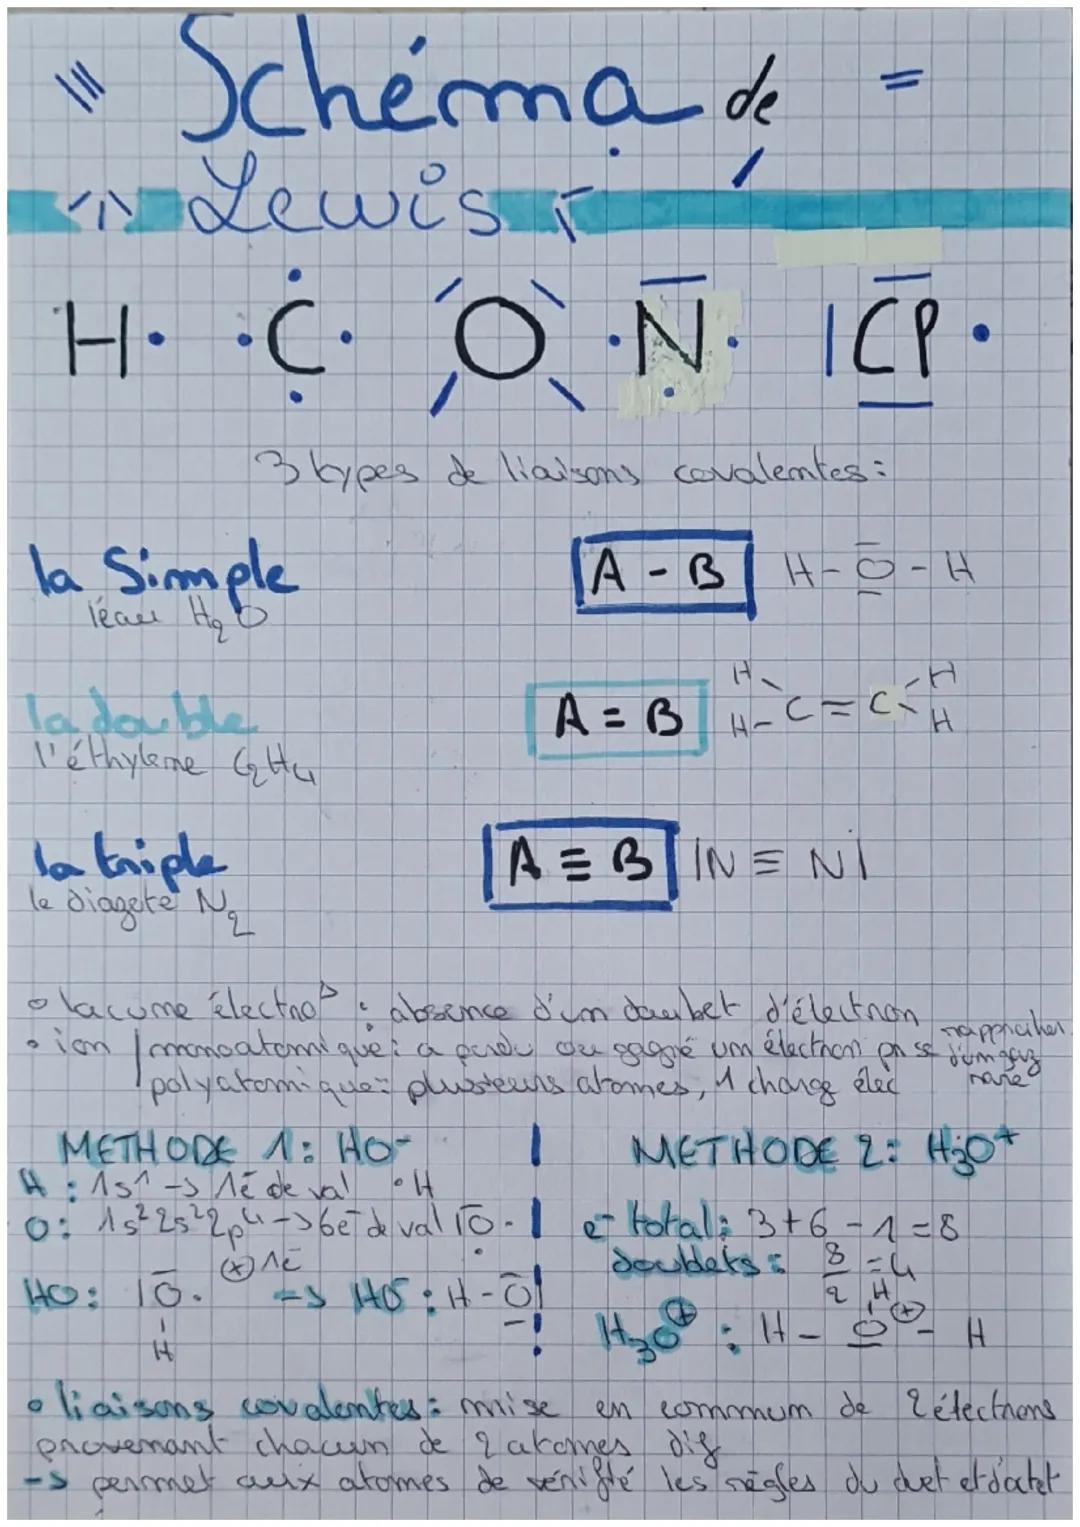 Schéma de
Lewis
H · C · O · N · |Cl ·
3 types de liaisons covalentes :
la Simple A - B H - O - H
l'eau H₂O
H H
la double A = B H - C = C H
l'éthylene C₂H₄
la triple A ≡ B |N ≡ N|
le diazote N₂
• lacune électro : absence d'un doublet d'électron
• ion monoatomique : a perdu ou gagné um électron pr se rapprocher d'um gaz rare
polyatomique : plusieurs atomes, 1 charge élec
METHODE 1 : HO⁻
METHODE 2 : H₃O⁺
H : 1s¹ -> 1é de val ·H
O : 1s² 2s² 2p⁴ -> 6e⁻ de val |O ·
⊕ 1é
HO : |O · => HO⁻ : H - O|
H
e⁻ total : 3+6-1=8
doublets : 8/2 = 4
H
H₃O⊕ : H - O⊕ - H
• liaisons covalentes : mise en commum de 2 électrons
provenant chacun de 2 atomes dif
-> permet aux atomes de vérifié les règles du duet et d'octet